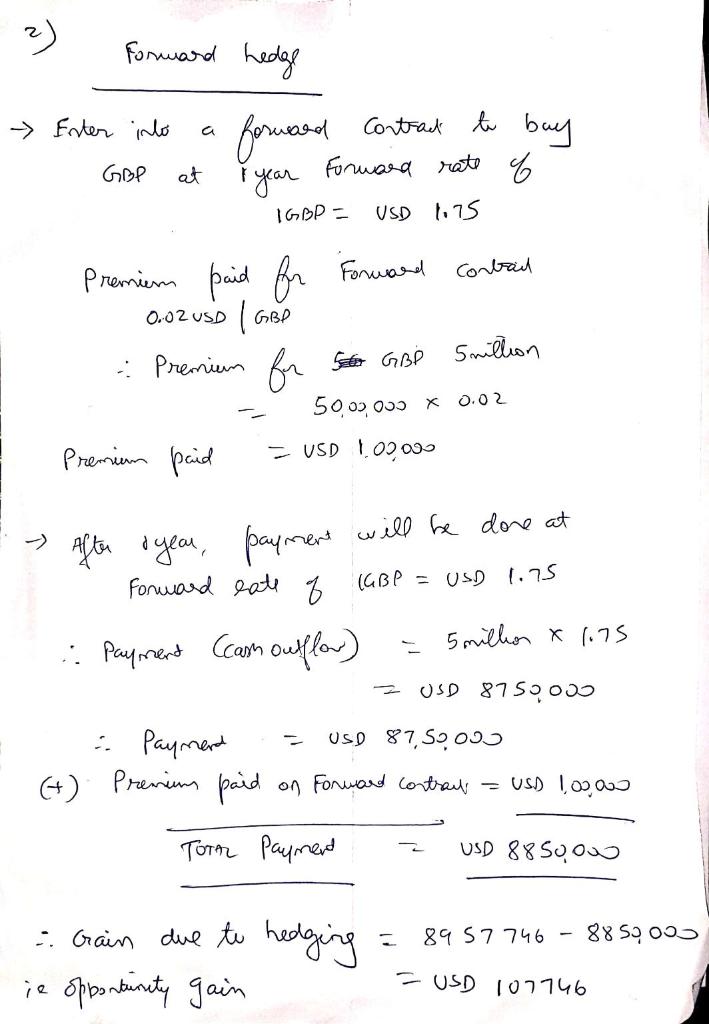 2)
Forward hedge
→ Enter into a forward contract to buy
GBP at 1 year Forward rate of
1GBP = USD 1.75
Premium paid for Forward contract
0.02 USD | GBP
∴ Premium for GBP 5million
= 50,00,000 x 0.02
Premium paid = USD 1,00,000
→ After 1 year, payment will be done at
Forward rate of 1GBP = USD 1.75
∴ Payment (cash outflow) = 5 million x 1.75
= USD 8750,000
∴ Payment = USD 87,50,000
(+) Premium paid on Forward contract = USD 1,00,000
TOTAL Payment = USD 8850,000
∴ Gain due to hedging = 8957746 - 8850,000
ie opportunity gain = USD 107746